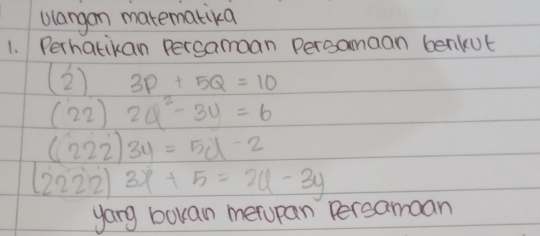 Ulangan matematika
1. Perhatikan Persamaan Persamaan berikut
(2) 3p + 5Q = 10
(22) 2d² - 3y = 6
(222) 3y = 5d - 2
(2222) 3x + 5 = 2d - 3y
yang bukan merupan Persamaan